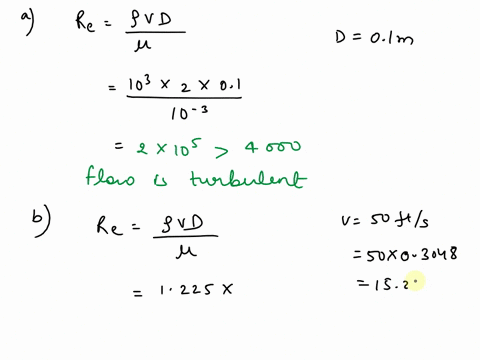 a) Re = ρVD / μ
D = 0.1m
= 10³ × 2 × 0.1 / 10⁻³
= 2 × 10⁵ > 4000
flow is turbulent
b) Re = ρVD / μ
V = 50 ft/s
= 50×0.3048
= 1.225 ×
= 15.2